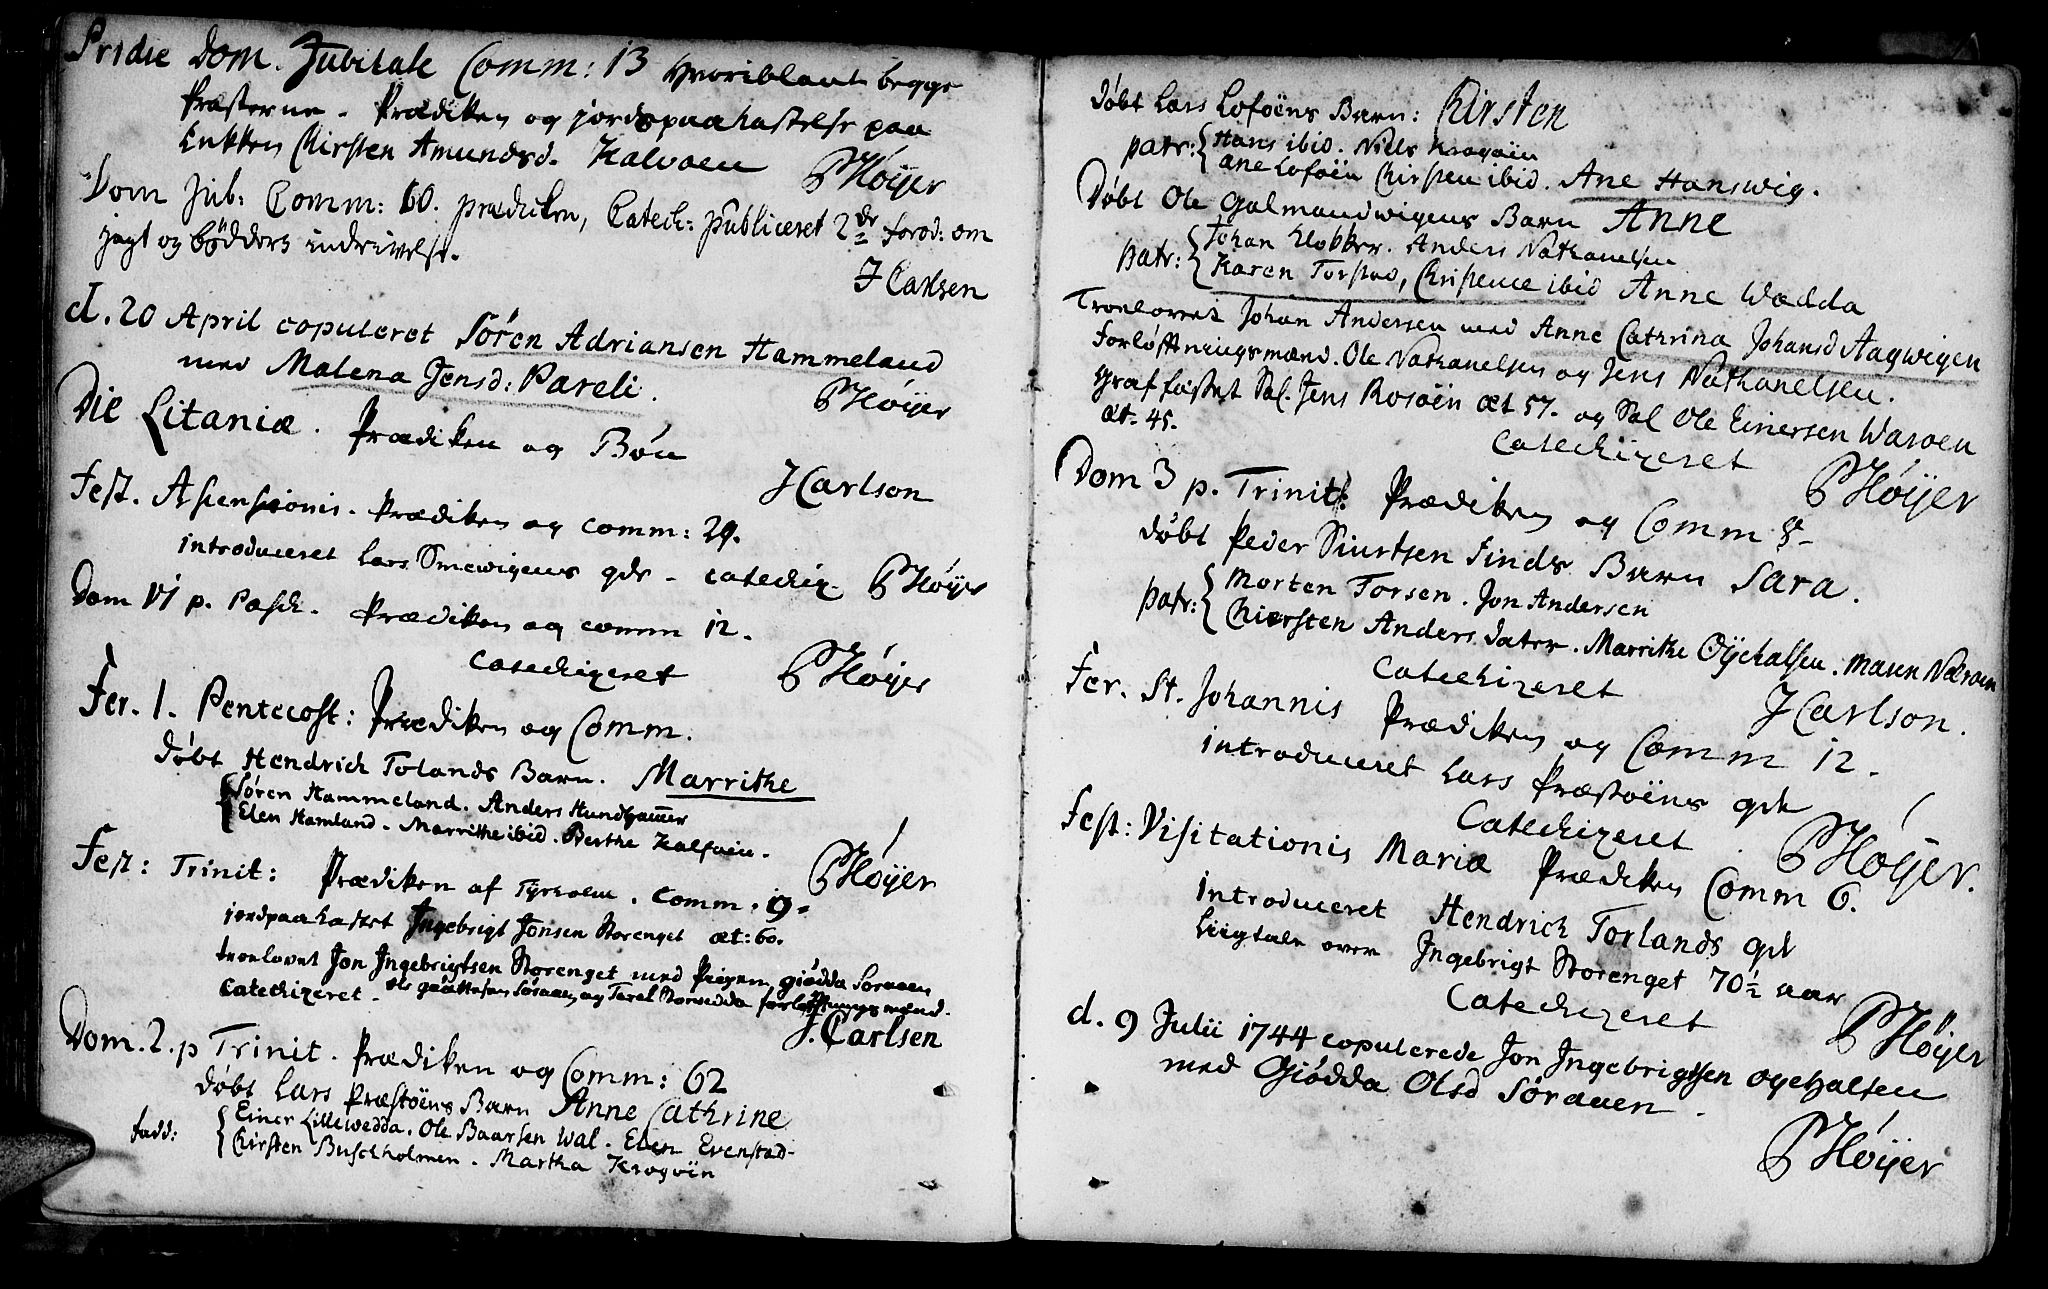 Pridie Dom. Jubilate Comm: 13 hvoriblant begge
Præsterne. Prædiken og jordspaakastelse paa
Enken Chirsten Amundsd. Kalvøen PHøijer
Dom Jub: Comm: 60. prædiken, Catech: publiceret 2de forod: om
jagt og bødders indrivelse.
J Carlsen
d. 20 April copuleret Søren Adriansen Hammeland
med Malena Jensd: Pareli. PHøijer
Die Litaniæ. Prædiken og Bøn
J Carlson
Fest. Ascensionis. Prædiken og comm: 29.
introduceret Lars Smewigens qde - catechiz. PHøijer
Dom VI p. Pasch. Prædiken og comm 12.
Catechizeret PHøijer
Fer. 1. Pentecost: Prædiken og Comm.
døbt Hendrich Tolands Barn. Marrithe
Søren Hammeland. Anders Hundhammer
Elen Hamland. Marrithe ibid. Berthe Kalføen.
PHøijer
Fest: Trinit: Prædiken af Tyrholm. Comm. 19.
jordpaakastet Ingebrigt Jonsen Storenget æt: 60.
trolovet Jon Ingebrigtsen Storenget med Pigen giødda Søraaen
Catechizeret. Søraaen og Torel forløftningsmænd.
J. Carlsen
Dom. 2. p Trinit. Prædiken og Comm: 62
døbt Lars Præstøens Barn Anne Cathrine
fadd: Einer Lillewedda. Ole Baarsen Wal. Elen Evenstad
Chirsten Buschholmen. Martha Krogøin
døbt Lars Lofoëns Barn: Chirsten
patr: Hans ibid. Niels Krogøin
Ane Lofoën Chirsten ibid. Ane Hanswig.
Døbt Ole Galmandwigens Barn Anne
patr: Johan Klokker. Anders Nathanelsen
Karen Torstad, Christence ibid Anne Wædda
Troelovet Johan Andersen med Anne Cathrina Johansd Aagwigen
Forløftningsmænd. Ole Nathanelsen og Jens Nathanelsen.
Graffæstet Sal. Jens Rosøen æt 57. og Sal Ole Einersen Warøen
æt. 45.
Catechizeret PHøijer
Dom 3 p. Trinit: Prædiken og Comm 8
døbt Peder Siurtsen Finds Barn Sara.
patr: Morten Torsen. Jon Andersen
Chiersten Anders dater. Marrithe Øyehalsen. Maren Nærøen
Catechizeret J Carlson.
Fer. St. Johannis Prædiken og Comm 12.
introduceret Lars Præstøens qde
Catechizeret. PHøijer.
Fest: Visitationis Mariæ Prædiken Comm 6.
introduceret Hendrich Torlands qde
Liigtale over Ingebrigt Storenget 70½ aar
Catechizeret PHøijer
d. 9 Julii 1744 copulerede Jon Ingebrigtsen Øyehalsen
med Giødda Olsd Søraaen.
PHøijer